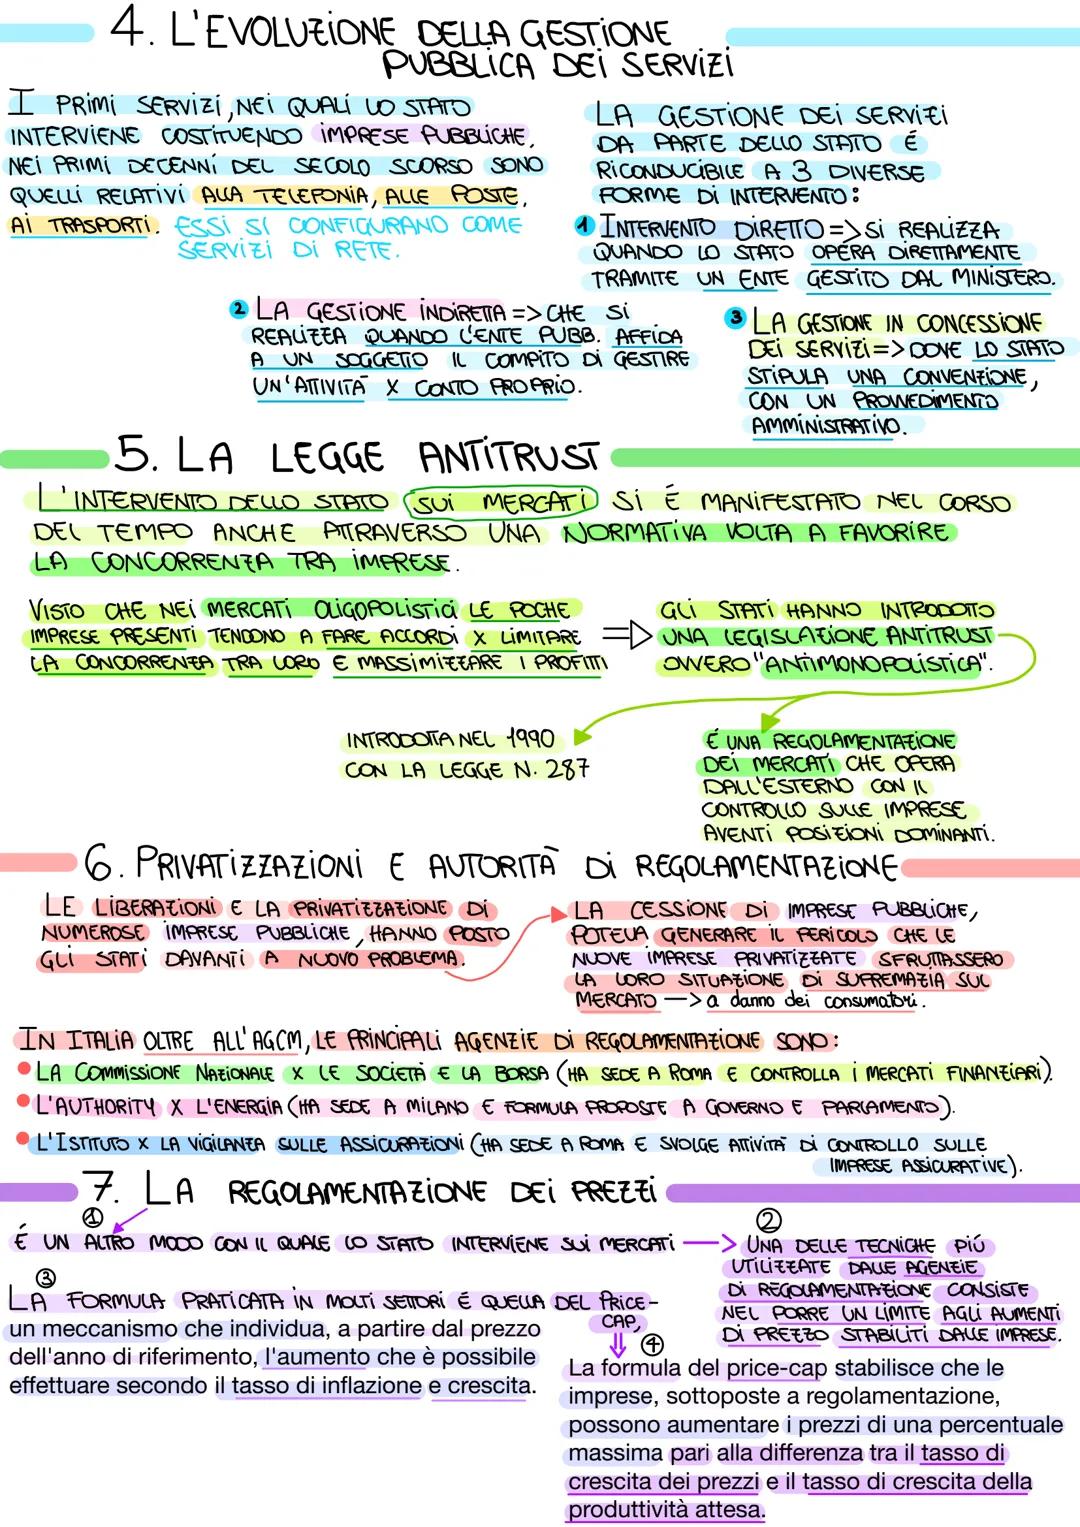 4. L'EVOLUZIONE DELLA GESTIONE
PUBBLICA DEI SERVIZI
I PRIMI SERVIZI, NEI QUALI LO STATO
INTERVIENE COSTITUENDO IMPRESE PUBBLICHE,
NEI PRIMI DECENNI DEL SECOLO SCORSO SONO
QUELLI RELATIVI ALLA TELEFONIA, ALLE POSTE,
AI TRASPORTI. ESSI SI CONFIGURANO COME
SERVIZI DI RETE.
LA GESTIONE DEI SERVIZI
DA PARTE DELLO STATO É
RICONDUCIBILE A 3 DIVERSE
FORME DI INTERVENTO:
1 INTERVENTO DIRETTO => SI REALIZZA
QUANDO LO STATO OPERA DIRETTAMENTE
TRAMITE UN ENTE GESTITO DAL MINISTERO.
2 LA GESTIONE INDIRETTA => CHE SI
REALIZZA QUANDO L'ENTE PUBB. AFFIDA
A UN SOGGETTO IL COMPITO DI GESTIRE
UN'ATTIVITÀ X CONTO PROPRIO.
3 LA GESTIONE IN CONCESSIONE
DEI SERVIZI => DOVE LO STATO
STIPULA UNA CONVENZIONE,
CON UN PROVVEDIMENTO
AMMINISTRATIVO.
5. LA LEGGE ANTITRUST
L'INTERVENTO DELLO STATO SUI MERCATI SI É MANIFESTATO NEL CORSO
DEL TEMPO ANCHE ATTRAVERSO UNA NORMATIVA VOLTA A FAVORIRE
LA CONCORRENZA TRA IMPRESE.
VISTO CHE NEI MERCATI OLIGOPOLISTICI LE POCHE
IMPRESE PRESENTI TENDONO A FARE ACCORDI X LIMITARE
LA CONCORRENZA TRA LORO E MASSIMIZZARE I PROFITTI
GLI STATI HANNO INTRODOTTO
UNA LEGISLAZIONE ANTITRUST
OVVERO "ANTIMONOPOLISTICA".
INTRODOTTA NEL 1990
CON LA LEGGE N. 287
É UNA REGOLAMENTAZIONE
DEI MERCATI CHE OPERA
DALL'ESTERNO CON IL
CONTROLLO SULLE IMPRESE
AVENTI POSIZIONI DOMINANTI.
6. PRIVATIZZAZIONI E AUTORITÀ DI REGOLAMENTAZIONE
LE LIBERAZIONI E LA PRIVATIZZAZIONE DI
NUMEROSE IMPRESE PUBBLICHE, HANNO POSTO
GLI STATI DAVANTI A NUOVO PROBLEMA.
LA CESSIONE DI IMPRESE PUBBLICHE,
POTEVA GENERARE IL PERICOLO CHE LE
NUOVE IMPRESE PRIVATIZZATE SFRUTTASSERO
LA LORO SITUAZIONE DI SUPREMAZIA SUL
MERCATO —> a danno dei consumatori.
IN ITALIA OLTRE ALL'AGCM, LE PRINCIPALI AGENZIE DI REGOLAMENTAZIONE SONO:
• LA COMMISSIONE NAZIONALE X LE SOCIETÀ E LA BORSA (HA SEDE A ROMA E CONTROLLA I MERCATI FINANZIARI).
• L'AUTHORITY X L'ENERGIA (HA SEDE A MILANO E FORMULA PROPOSTE A GOVERNO E PARLAMENTO).
• L'ISTITUTO X LA VIGILANZA SULLE ASSICURAZIONI (HA SEDE A ROMA E SVOLGE ATTIVITÀ DI CONTROLLO SULLE
IMPRESE ASSICURATIVE).
7. LA REGOLAMENTAZIONE DEI PREZZI
①
É UN ALTRO MODO CON IL QUALE LO STATO INTERVIENE SUI MERCATI —>
②
UNA DELLE TECNICHE PIÚ
UTILIZZATE DALLE AGENZIE
DI REGOLAMENTAZIONE CONSISTE
NEL PORRE UN LIMITE AGLI AUMENTI
DI PREZZO STABILITI DALLE IMPRESE.
③
LA FORMULA PRATICATA IN MOLTI SETTORI É QUELLA DEL PRICE-
CAP,
un meccanismo che individua, a partire dal prezzo
dell'anno di riferimento, l'aumento che è possibile
effettuare secondo il tasso di inflazione e crescita.
④
La formula del price-cap stabilisce che le
imprese, sottoposte a regolamentazione,
possono aumentare i prezzi di una percentuale
massima pari alla differenza tra il tasso di
crescita dei prezzi e il tasso di crescita della
produttività attesa.